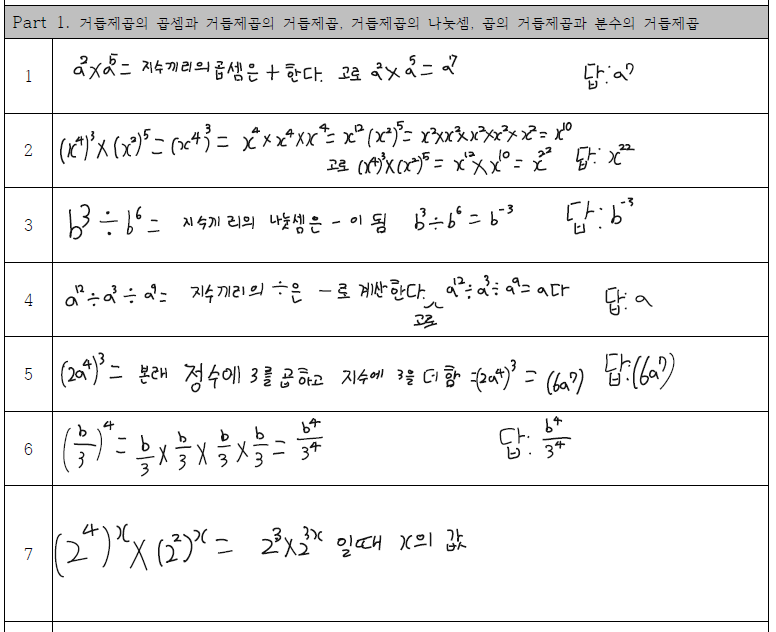 Part 1. 거듭제곱의 곱셈과 거듭제곱의 거듭제곱, 거듭제곱의 나눗셈, 곱의 거듭제곱과 분수의 거듭제곱
1 a²×a⁵= 지수끼리의 곱셈은 + 한다. 고로 a²×a⁵=a⁷ 답:a⁷
2 (x⁴)³×(x²)⁵=(x⁴)³= x⁴×x⁴×x⁴=x¹²(x²)⁵=x²×x²×x²×x²×x²=x¹⁰
고로 (x⁴)³×(x²)⁵=x¹²×x¹⁰=x²² 답:x²²
3 b³÷b⁶= 지수끼리의 나눗셈은 - 이 됨 b³÷b⁶=b⁻³ 답:b⁻³
4 a¹²÷a³÷a⁹= 지수끼리의 ÷은 -로 계산한다. 고로 a¹²÷a³÷a⁹=a다 답:a
5 (2a⁴)³= 본래 정수에 3를 곱하고 지수에 3을 더함 =(2a⁴)³=(6a⁷) 답:(6a⁷)
6 (b/3)⁴=b/3×b/3×b/3×b/3=b⁴/3⁴ 답:b⁴/3⁴
7 (2⁴)ˣ×(2²)ˣ= 2³×2³ˣ 일때 x의 값